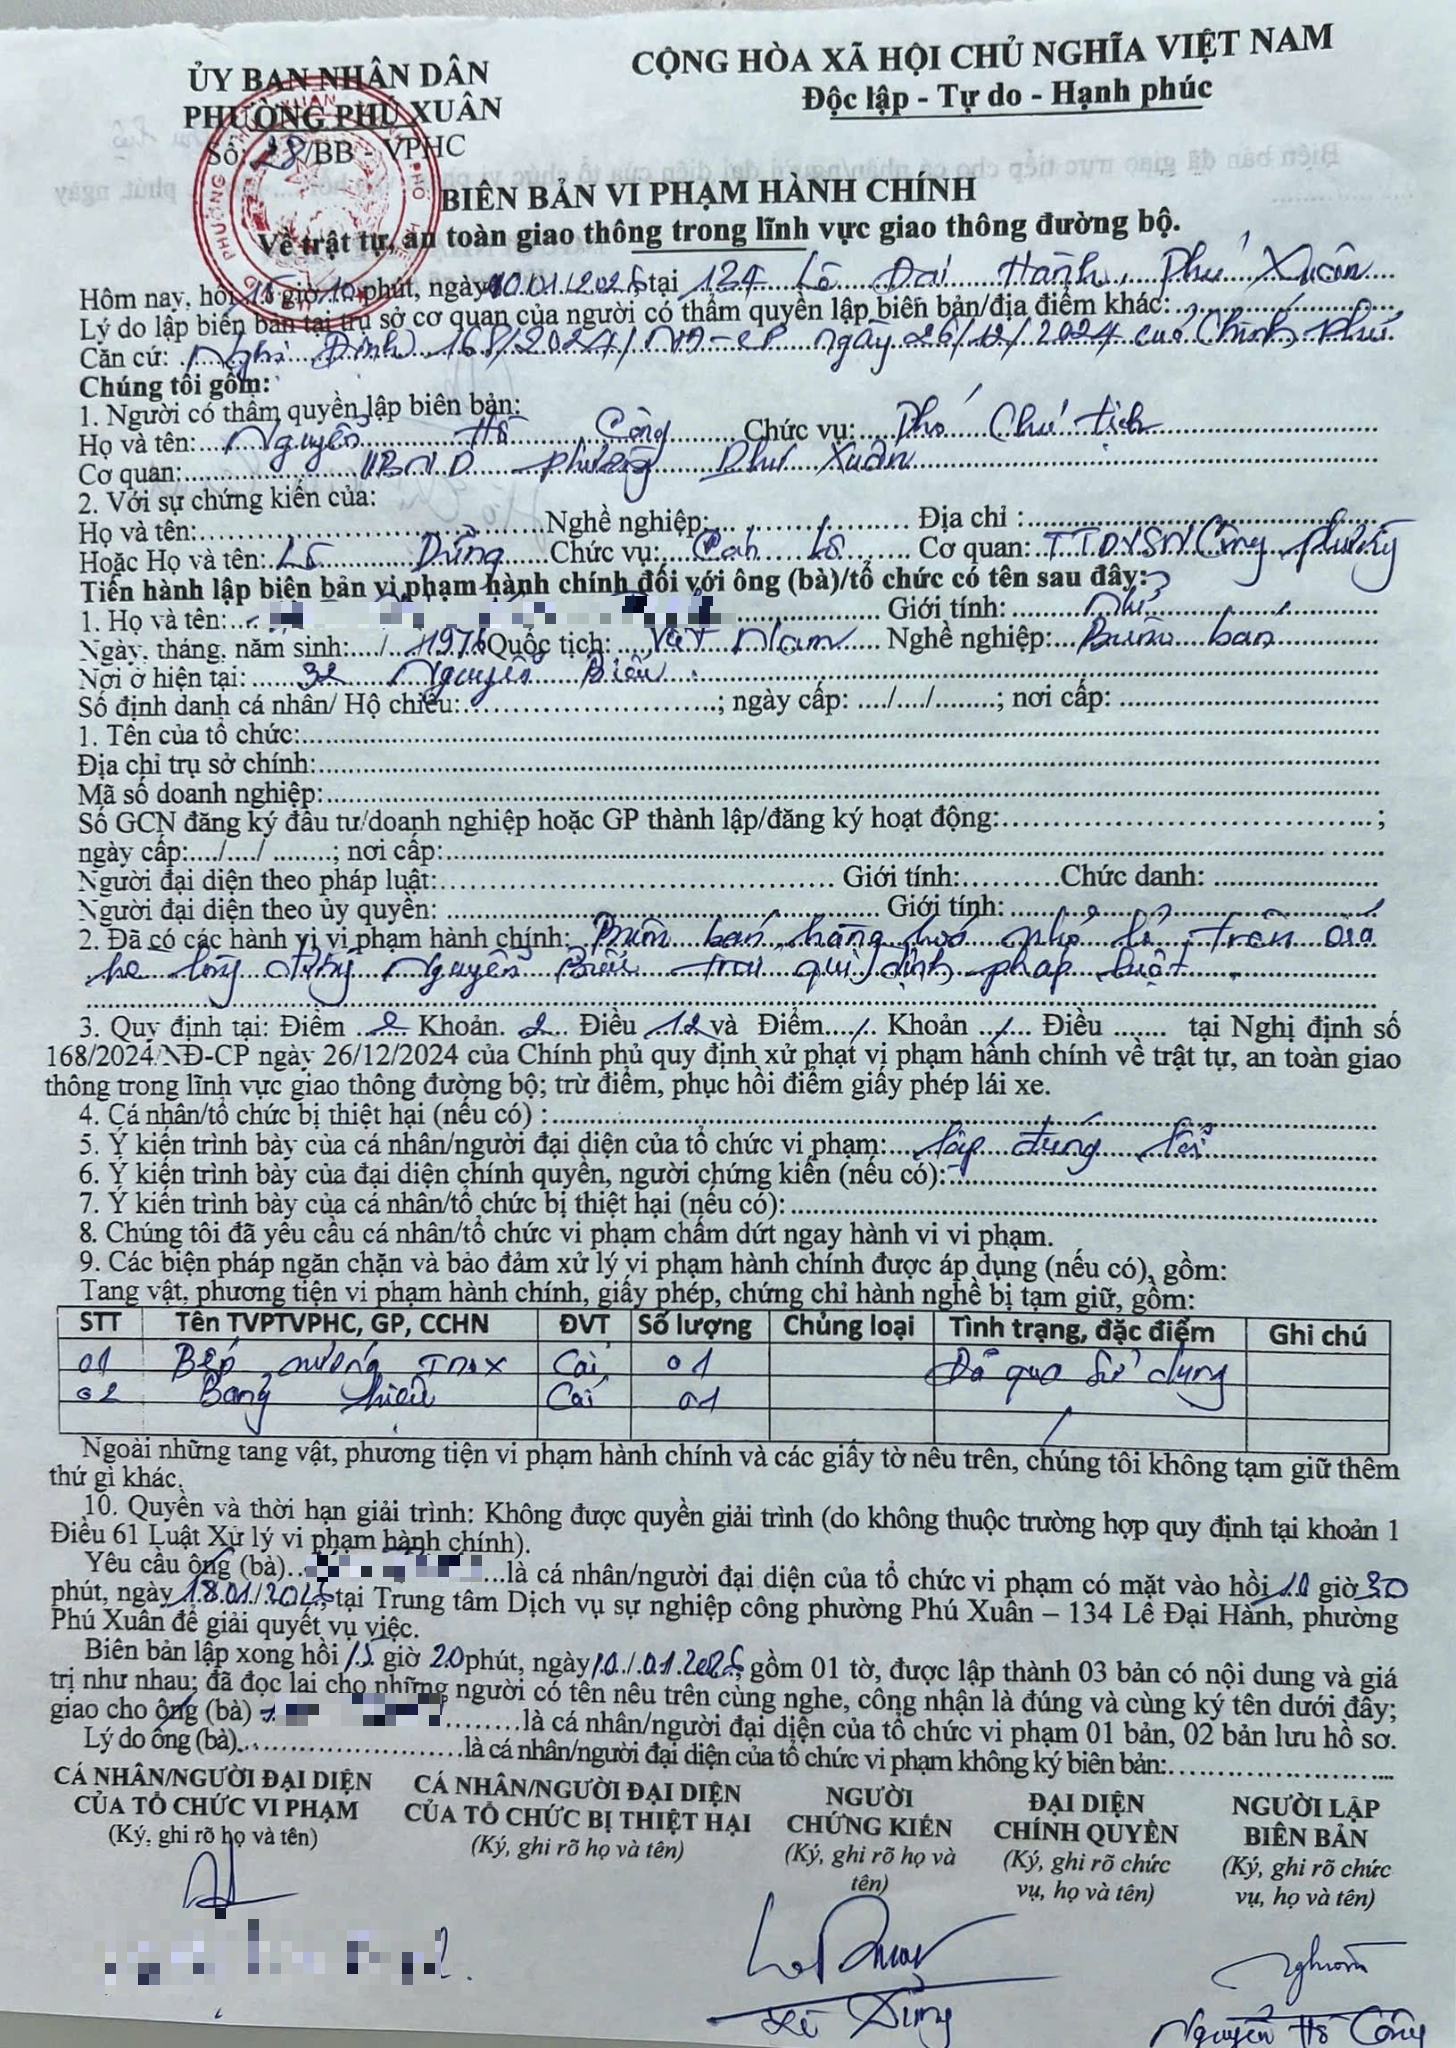 ỦY BAN NHÂN DÂN
PHƯỜNG PHÚ XUÂN
Số: 28/BB - VPHC
CỘNG HÒA XÃ HỘI CHỦ NGHĨA VIỆT NAM
Độc lập - Tự do - Hạnh phúc
BIÊN BẢN VI PHẠM HÀNH CHÍNH
Về trật tự, an toàn giao thông trong lĩnh vực giao thông đường bộ.
Hôm nay, hồi 15 giờ 10 phút, ngày 10/01/2026, tại 134 Lê Đại Hành, Phú Xuân
Lý do lập biên bản tại trụ sở cơ quan của người có thẩm quyền lập biên bản/địa điểm khác:
Căn cứ: Nghị Định 168/2024/NĐ-CP ngày 26/12/2024 của Chính phủ
Chúng tôi gồm:
1. Người có thẩm quyền lập biên bản:
Họ và tên: Nguyễn Hồ Công Chức vụ: Phó Chủ tịch
Cơ quan: UBND phường Phú Xuân
2. Với sự chứng kiến của:
Họ và tên: Nghề nghiệp: Địa chỉ :
Hoặc Họ và tên: Lê Dũng Chức vụ: Cán bộ Cơ quan: TTDVSN Công phường
Tiến hành lập biên bản vi phạm hành chính đối với ông (bà)/tổ chức có tên sau đây:
1. Họ và tên: Giới tính: Nữ
Ngày, tháng, năm sinh:..../.. 1976 Quốc tịch: Việt Nam Nghề nghiệp: Buôn bán
Nơi ở hiện tại: 32 Nguyễn Biểu
Số định danh cá nhân/ Hộ chiếu: ; ngày cấp: ..../..../........; nơi cấp:
1. Tên của tổ chức:
Địa chỉ trụ sở chính:
Mã số doanh nghiệp:
Số GCN đăng ký đầu tư/doanh nghiệp hoặc GP thành lập/đăng ký hoạt động: ;
ngày cấp:..../..../ ........; nơi cấp:
Người đại diện theo pháp luật: Giới tính: Chức danh:
Người đại diện theo ủy quyền: Giới tính:
2. Đã có các hành vi vi phạm hành chính: Buôn bán hàng hoá nhỏ lẻ trên vỉa
hè lòng đường Nguyễn Biểu trái qui định pháp luật.
3. Quy định tại: Điểm Khoản 2 Điều 12 và Điểm../.. Khoản ../... Điều ....... tại Nghị định số
168/2024/NĐ-CP ngày 26/12/2024 của Chính phủ quy định xử phạt vi phạm hành chính về trật tự, an toàn giao
thông trong lĩnh vực giao thông đường bộ; trừ điểm, phục hồi điểm giấy phép lái xe.
4. Cá nhân/tổ chức bị thiệt hại (nếu có) :
5. Ý kiến trình bày của cá nhân/người đại diện của tổ chức vi phạm: lập đúng lỗi
6. Ý kiến trình bày của đại diện chính quyền, người chứng kiến (nếu có):
7. Ý kiến trình bày của cá nhân/tổ chức bị thiệt hại (nếu có):
8. Chúng tôi đã yêu cầu cá nhân/tổ chức vi phạm chấm dứt ngay hành vi vi phạm.
9. Các biện pháp ngăn chặn và bảo đảm xử lý vi phạm hành chính được áp dụng (nếu có), gồm:
Tang vật, phương tiện vi phạm hành chính, giấy phép, chứng chỉ hành nghề bị tạm giữ, gồm:
STT Tên TVPTVPHC, GP, CCHN ĐVT Số lượng Chủng loại Tình trạng, đặc điểm Ghi chú
01 Bếp nướng Inox Cái 01 Đã qua sử dụng
02 Bảng hiệu Cái 01
Ngoài những tang vật, phương tiện vi phạm hành chính và các giấy tờ nêu trên, chúng tôi không tạm giữ thêm
thứ gì khác.
10. Quyền và thời hạn giải trình: Không được quyền giải trình (do không thuộc trường hợp quy định tại khoản 1
Điều 61 Luật Xử lý vi phạm hành chính).
Yêu cầu ông (bà) là cá nhân/người đại diện của tổ chức vi phạm có mặt vào hồi 10 giờ 30
phút, ngày 18/01/2026, tại Trung tâm Dịch vụ sự nghiệp công phường Phú Xuân – 134 Lê Đại Hành, phường
Phú Xuân để giải quyết vụ việc.
Biên bản lập xong hồi 15 giờ 20 phút, ngày 10/01/2026, gồm 01 tờ, được lập thành 03 bản có nội dung và giá
trị như nhau; đã đọc lại cho những người có tên nêu trên cùng nghe, công nhận là đúng và cùng ký tên dưới đây;
giao cho ông (bà) là cá nhân/người đại diện của tổ chức vi phạm 01 bản, 02 bản lưu hồ sơ.
Lý do ông (bà) là cá nhân/người đại diện của tổ chức vi phạm không ký biên bản:
CÁ NHÂN/NGƯỜI ĐẠI DIỆN
CỦA TỔ CHỨC VI PHẠM
(Ký, ghi rõ họ và tên)
CÁ NHÂN/NGƯỜI ĐẠI DIỆN
CỦA TỔ CHỨC BỊ THIỆT HẠI
(Ký, ghi rõ họ và tên)
NGƯỜI
CHỨNG KIẾN
(Ký, ghi rõ họ và
tên)
Lê Dũng
ĐẠI DIỆN
CHÍNH QUYỀN
(Ký, ghi rõ chức
vụ, họ và tên)
NGƯỜI LẬP
BIÊN BẢN
(Ký, ghi rõ chức
vụ, họ và tên)
Nguyễn Hồ Công